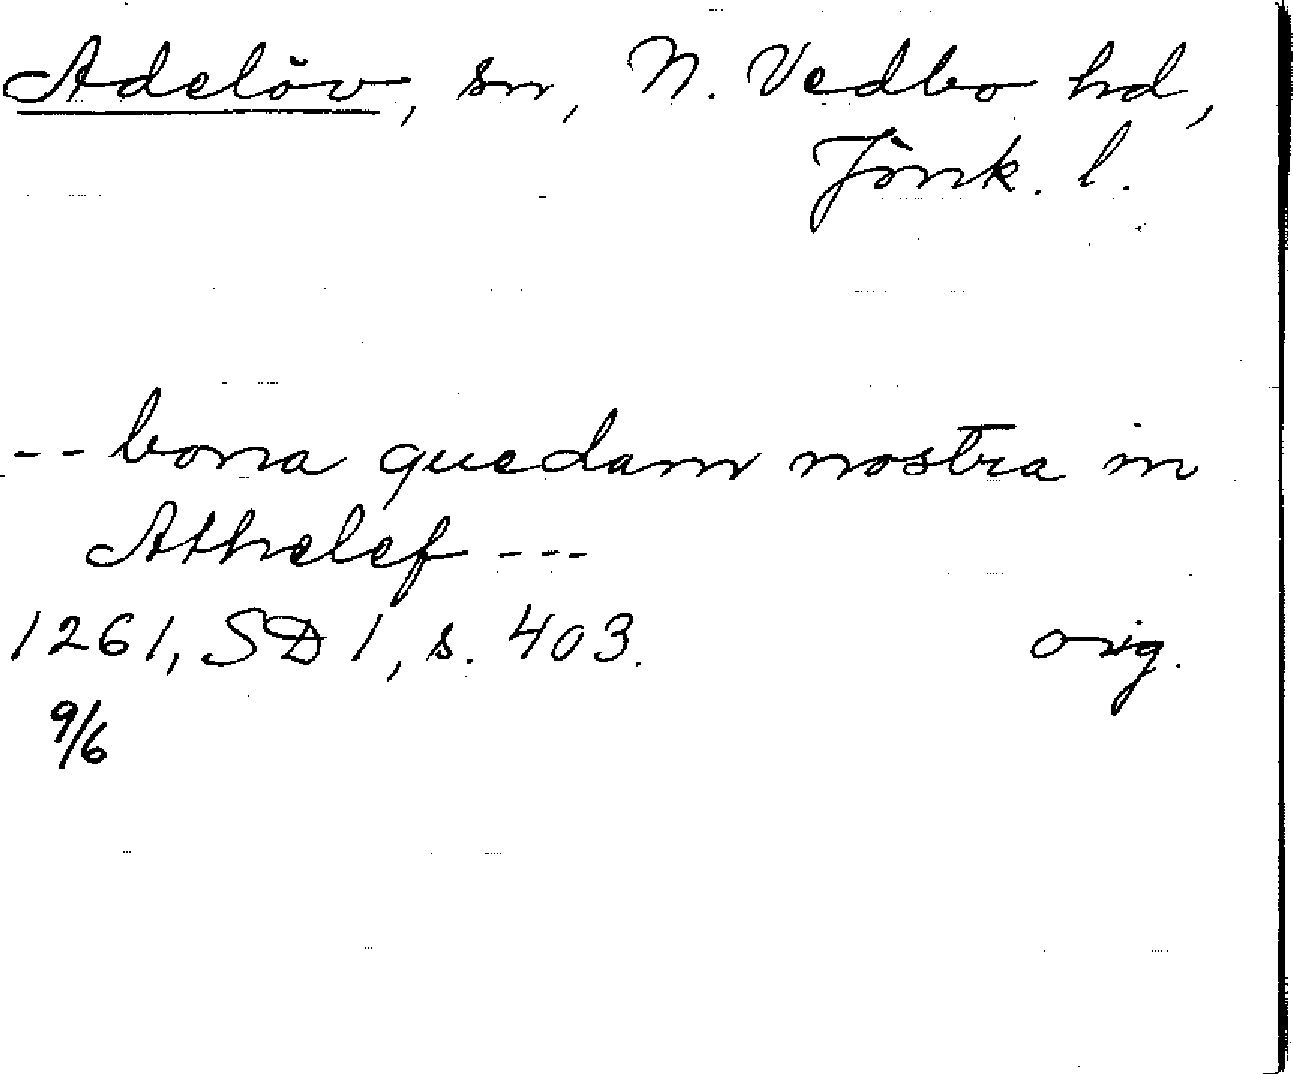 Adelöv, sn, N. Vedbo hd,
Jönk. l.
-- bona quedam nostra in
Athelef ---
1261, SD 1, s. 403. orig.
9/6